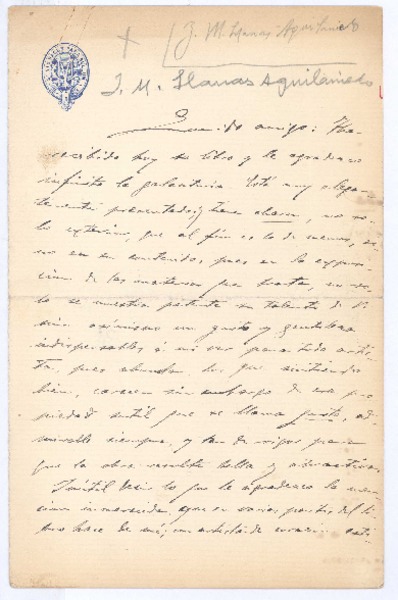 J. M. Llanas Aguilaniedo
J. M. Llanas Aguilaniedo
Querido amigo: He
recibido hoy su libro y le agradezco
infinito la galantería. Está muy elegan-
temente presentado y tiene no so-
lo exterior, que al fin es lo de menos, si-
no en su contenido, pues en la exposi-
cion de las materias que trata, no so-
lo se muestra patente su talento de V.
sino asimismo un gusto y
indispensables á mi ver para todo artis-
ta, pues abundan los que sintiendo
bien, carecen sin embargo de esa pro
piedad sutil que se llama gusto, ad-
mirable siempre, y tan de rigor para
que la obra resulte bella y atractiva.
Inútil decir lo que le agradezco la men-
cion inmerecida, que en varias partes del li-
bro hace de mí; un artista de corazon